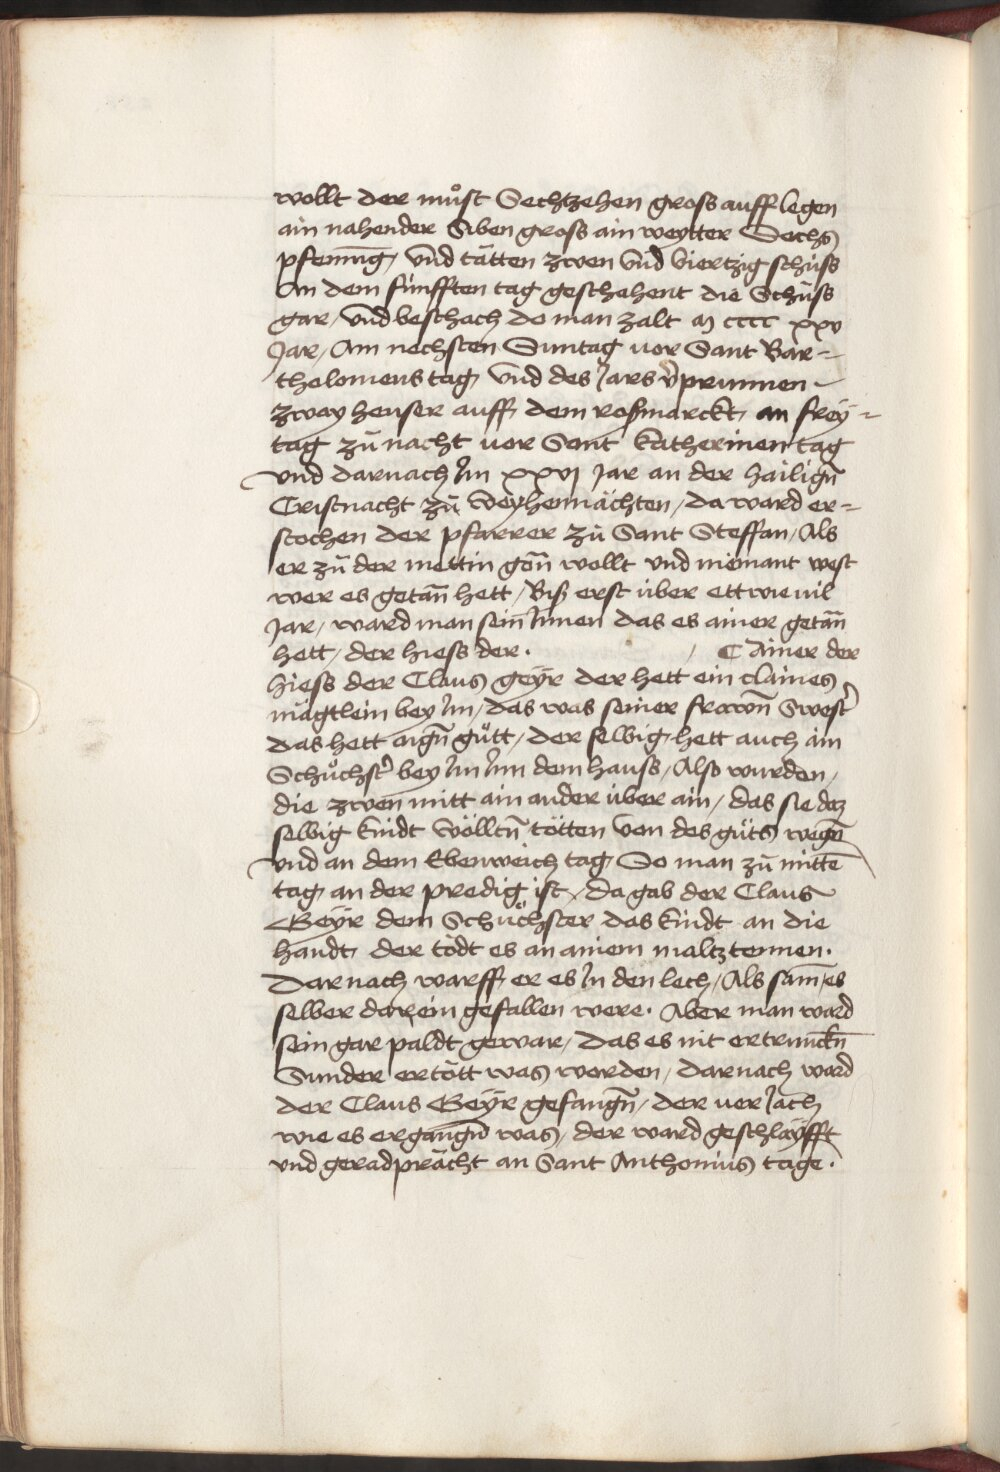 wollt der můst Sechtzehen gross aufflegen
ain nahender Siben gross ain weytter Sechs
pfening, vnd tätten zwen vnd viertzig schüss
An dem fünfften tag geschehent die Schüss
gar, vnd beschach do man zalt M cccc xxv
Jar, Am nechsten Suntag vor Sant Bar=
tholomeus tag, vnd des Jars v̄prunnen
zway heuser auff dem rossmarckt, an frey=
tag zů nacht vor Sant Katherinen tag
vnd darnach Im xxvj Jar an der hailign̄
Cristnacht zů Weyhennächten, da ward er=
stochen der pfarrer zů Sant Steffan, Als
er zů der mettin gōn wollt vnd niemant west
wer es getan̄ hett, Biß erst über ettwieuil
Jar, ward man sein Innen das es ainer getan̄
hett, der hiess der. C Ainer der
hiess der Claus geÿr der hett ein claines
mägtlein bey Im, das was seiner frawn̄ Swest̄
das hett aign̄ gůtt, der selbig hett auch ain
Schůchst̄ bey Im Inn dem hauss, Also wurden,
die zwen mitt ain ander über ain, das sie dez
selbig kindt Wölltn̄ tötten von des gůts wegn̄
vnd an dem Ebenweich tag, So man zů mittē
tag, an der predig ist, da gab der Claus
Geÿr dem Schůchster das kindt an die
handt, der tödt es an ainem maltztennen.
Darnach warff er es In den lech, Als sam, es
selber darein gefallen were. Aber man ward
sein gar paldt gewar, das es nit ertrunckn̄
Sunder ertött was worden, darnach ward
der Claus Geÿr gefangn̄, der veriach
wie es ergangn̄ was, der ward geschläÿfft
vnd geradprächt an Sant Anthonius tage.